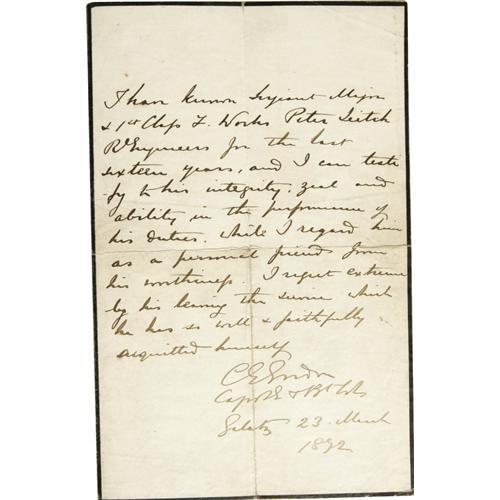 I have known Serjeant Major
& 1st Class F. Works Peter Leitch
Rl Engineers for the last
sixteen years, and I can testi
fy to his integrity, zeal and
ability in the performance of
his duties. While I regard him
as a personal friend from
his worthiness. I regret extreme
ly his leaving the service which
he has so well & faithfully
acquitted himself
C E Gordon
Capt RE & Bt Col
Galatz 23. March
1872